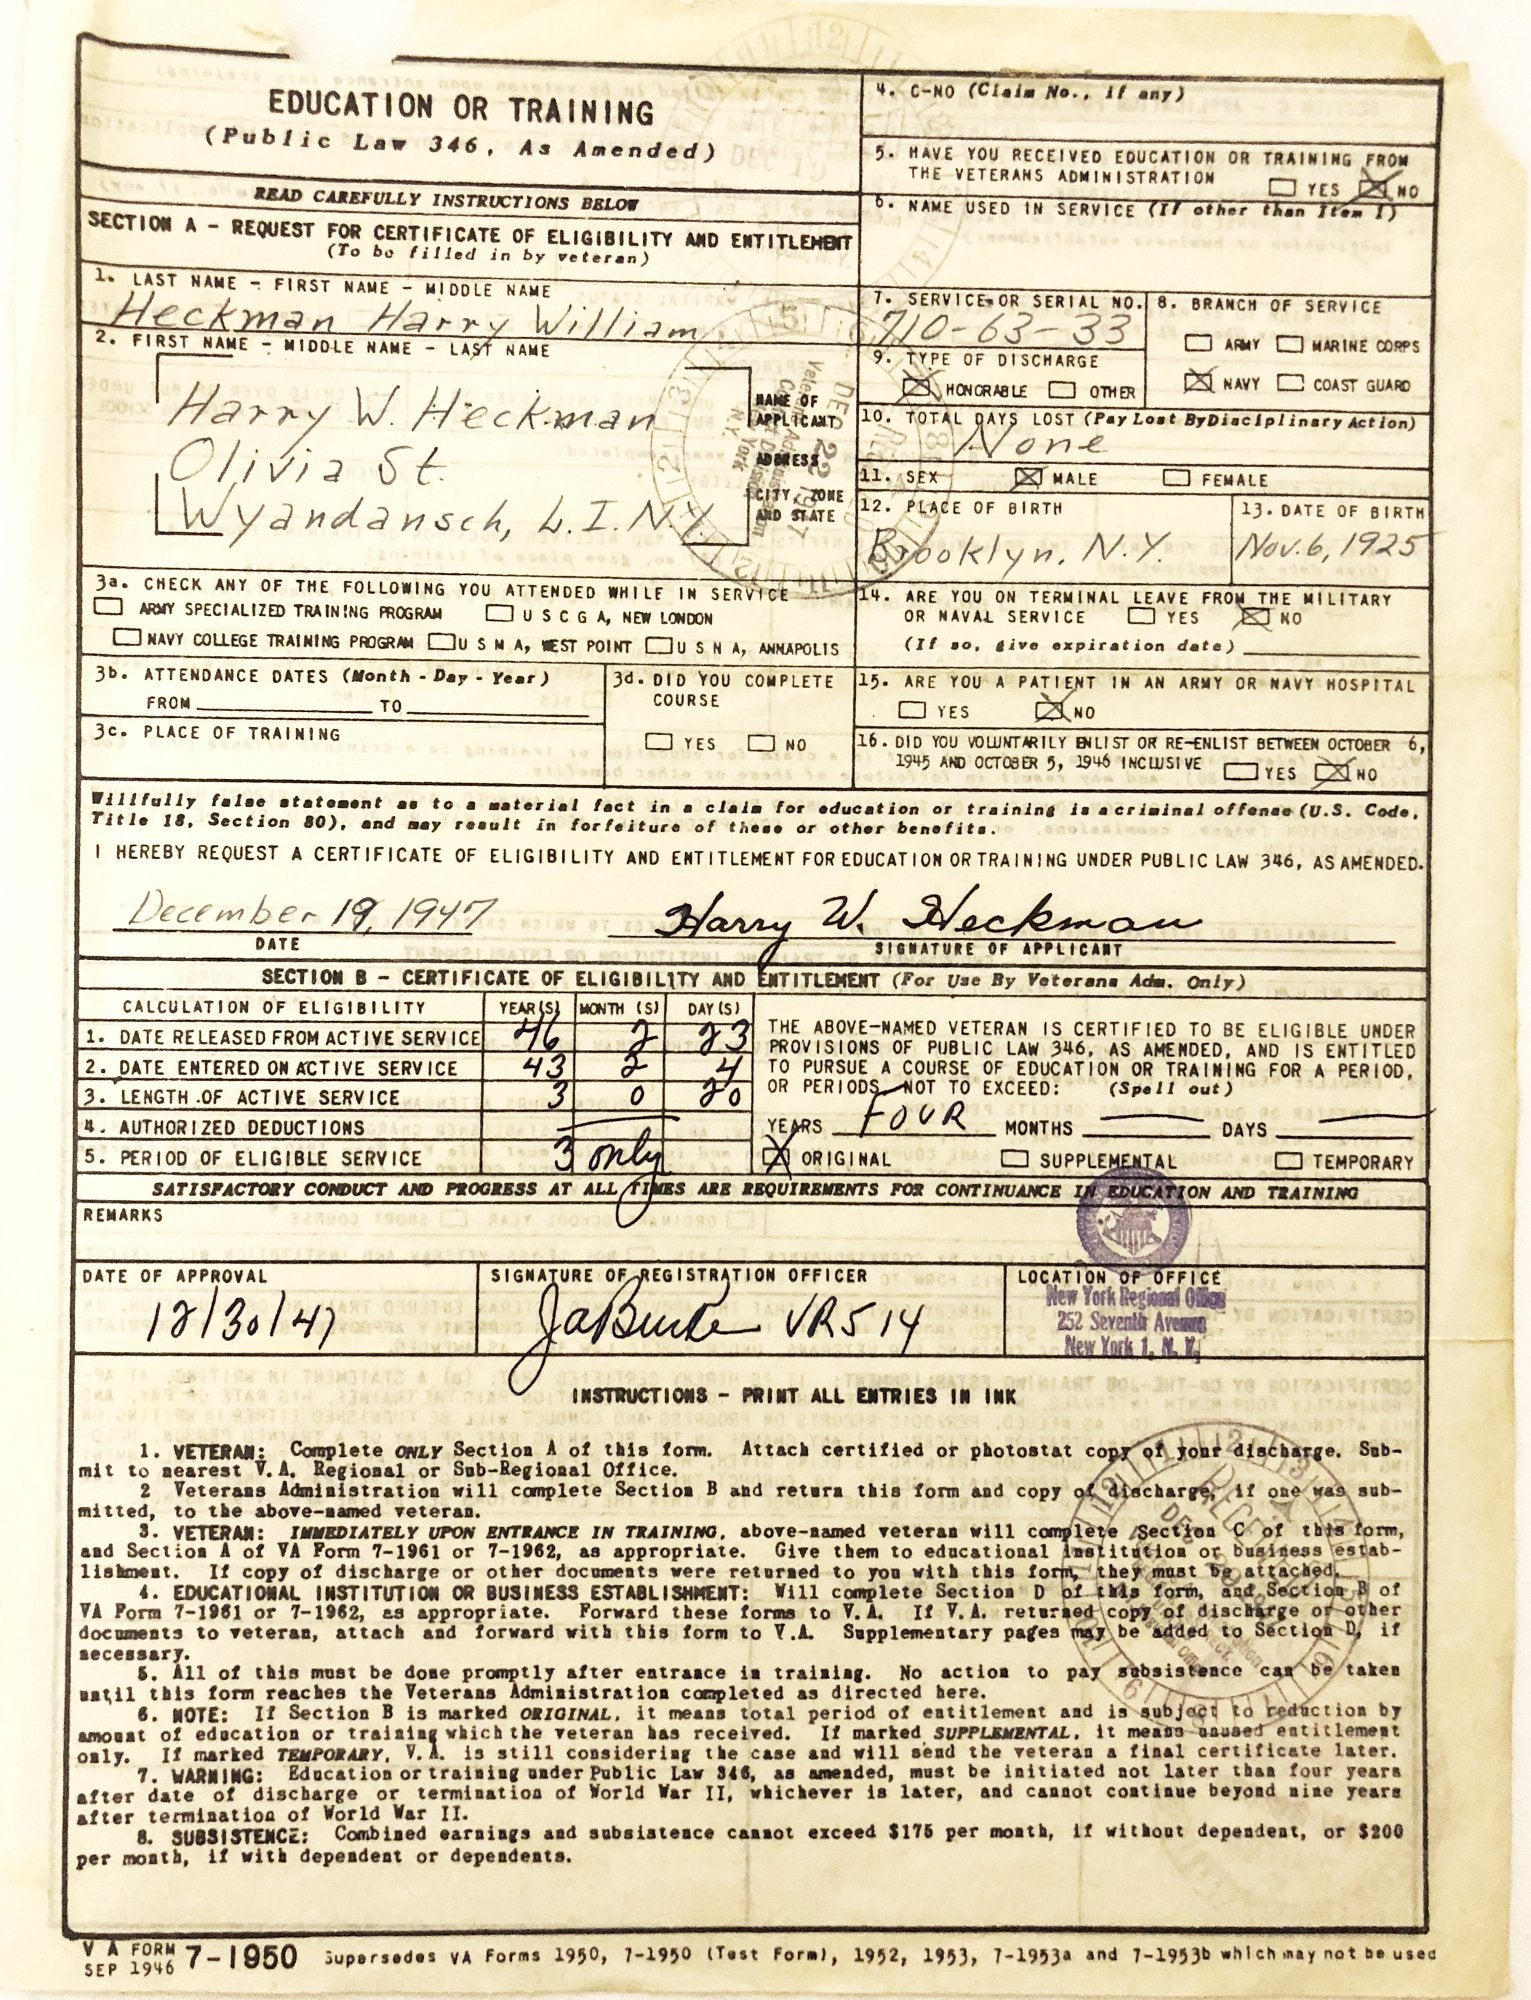 EDUCATION OR TRAINING
(Public Law 346, As Amended)
READ CAREFULLY INSTRUCTIONS BELOW
SECTION A - REQUEST FOR CERTIFICATE OF ELIGIBILITY AND ENTITLEMENT
(To be filled in by veteran)
1. LAST NAME - FIRST NAME - MIDDLE NAME
Heckman Harry William
2. FIRST NAME - MIDDLE NAME - LAST NAME
Harry W. Heckman
Olivia St.
Wyandansch, L.I. N.Y.
NAME OF
APPLICANT
ADDRESS
CITY, ZONE
AND STATE
DEC 22 1947
3a. CHECK ANY OF THE FOLLOWING YOU ATTENDED WHILE IN SERVICE
ARMY SPECIALIZED TRAINING PROGRAM U S C G A, NEW LONDON
NAVY COLLEGE TRAINING PROGRAM U S M A, WEST POINT U S N A, ANNAPOLIS
3b. ATTENDANCE DATES (Month - Day - Year)
FROM TO
3c. PLACE OF TRAINING
3d. DID YOU COMPLETE
COURSE
YES NO
4. C-NO (Claim No., if any)
5. HAVE YOU RECEIVED EDUCATION OR TRAINING FROM
THE VETERANS ADMINISTRATION YES NO
6. NAME USED IN SERVICE (If other than Item 1)
7. SERVICE OR SERIAL NO.
710-63-33
8. BRANCH OF SERVICE
ARMY MARINE CORPS
NAVY COAST GUARD
9. TYPE OF DISCHARGE
HONORABLE OTHER
10. TOTAL DAYS LOST (Pay Lost By Disciplinary Action)
None
11. SEX MALE FEMALE
12. PLACE OF BIRTH
Brooklyn, N.Y.
13. DATE OF BIRTH
Nov. 6, 1925
14. ARE YOU ON TERMINAL LEAVE FROM THE MILITARY
OR NAVAL SERVICE YES NO
(If so, give expiration date)
15. ARE YOU A PATIENT IN AN ARMY OR NAVY HOSPITAL
YES NO
16. DID YOU VOLUNTARILY ENLIST OR RE-ENLIST BETWEEN OCTOBER 6,
1945 AND OCTOBER 5, 1946 INCLUSIVE YES NO
Willfully false statement as to a material fact in a claim for education or training is a criminal offense (U.S. Code,
Title 18, Section 80), and may result in forfeiture of these or other benefits.
I HEREBY REQUEST A CERTIFICATE OF ELIGIBILITY AND ENTITLEMENT FOR EDUCATION OR TRAINING UNDER PUBLIC LAW 346, AS AMENDED.
December 19, 1947 Harry W. Heckman
DATE SIGNATURE OF APPLICANT
SECTION B - CERTIFICATE OF ELIGIBILITY AND ENTITLEMENT (For Use By Veterans Adm. Only)
CALCULATION OF ELIGIBILITY YEAR(S) MONTH (S) DAY (S)
1. DATE RELEASED FROM ACTIVE SERVICE 46 2 23
2. DATE ENTERED ON ACTIVE SERVICE 43 2 4
3. LENGTH OF ACTIVE SERVICE 3 0 20
4. AUTHORIZED DEDUCTIONS
5. PERIOD OF ELIGIBLE SERVICE 3 only
THE ABOVE-NAMED VETERAN IS CERTIFIED TO BE ELIGIBLE UNDER
PROVISIONS OF PUBLIC LAW 346, AS AMENDED, AND IS ENTITLED
TO PURSUE A COURSE OF EDUCATION OR TRAINING FOR A PERIOD,
OR PERIODS, NOT TO EXCEED: (Spell out)
YEARS FOUR MONTHS DAYS
ORIGINAL SUPPLEMENTAL TEMPORARY
SATISFACTORY CONDUCT AND PROGRESS AT ALL TIMES ARE REQUIREMENTS FOR CONTINUANCE IN EDUCATION AND TRAINING
REMARKS
DATE OF APPROVAL
12/30/47
SIGNATURE OF REGISTRATION OFFICER
JaBurke VR514
LOCATION OF OFFICE
New York Regional Office
252 Seventh Avenue
New York 1, N. Y.
INSTRUCTIONS - PRINT ALL ENTRIES IN INK
1. VETERAN: Complete ONLY Section A of this form. Attach certified or photostat copy of your discharge. Sub-
mit to nearest V.A. Regional or Sub-Regional Office.
2 Veterans Administration will complete Section B and return this form and copy of discharge, if one was sub-
mitted, to the above-named veteran.
3. VETERAN: IMMEDIATELY UPON ENTRANCE IN TRAINING, above-named veteran will complete Section C of this form,
and Section A of VA Form 7-1961 or 7-1962, as appropriate. Give them to educational institution or business estab-
lishment. If copy of discharge or other documents were returned to you with this form, they must be attached.
4. EDUCATIONAL INSTITUTION OR BUSINESS ESTABLISHMENT: Will complete Section D of this form, and Section B of
VA Form 7-1961 or 7-1962, as appropriate. Forward these forms to V.A. If V.A. returned copy of discharge or other
documents to veteran, attach and forward with this form to V.A. Supplementary pages may be added to Section D, if
necessary.
5. All of this must be done promptly after entrance in training. No action to pay subsistence can be taken
until this form reaches the Veterans Administration completed as directed here.
6. NOTE: If Section B is marked ORIGINAL, it means total period of entitlement and is subject to reduction by
amount of education or training which the veteran has received. If marked SUPPLEMENTAL, it means unused entitlement
only. If marked TEMPORARY, V.A. is still considering the case and will send the veteran a final certificate later.
7. WARNING: Education or training under Public Law 346, as amended, must be initiated not later than four years
after date of discharge or termination of World War II, whichever is later, and cannot continue beyond nine years
after termination of World War II.
8. SUBSISTENCE: Combined earnings and subsistence cannot exceed $175 per month, if without dependent, or $200
per month, if with dependent or dependents.
V A FORM
SEP 1946 7-1950 Supersedes VA Forms 1950, 7-1950 (Test Form), 1952, 1953, 7-1953a and 7-1953b which may not be used